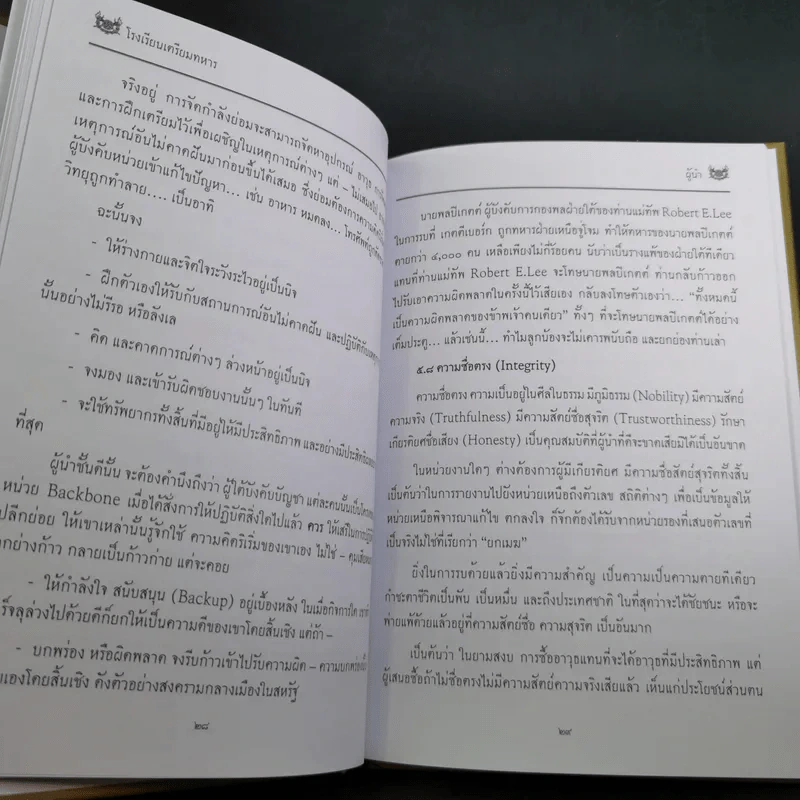 โรงเรียนเตรียมทหาร
จริงอยู่ การจัดกำลังย่อมจะสามารถจัดหาอุปกรณ์ อาวุธ
และการฝึกเตรียมไว้เพื่อเผชิญในเหตุการณ์ต่างๆ แต่ – ไม่เสมอไป
เหตุการณ์อันไม่คาดฝันมาก่อนขึ้นได้เสมอ ซึ่งย่อมต้องการความคิด
ผู้บังคับหน่วยเข้าแก้ไขปัญหา... เช่น อาหาร หมดลง... โทรศัพท์ถูกตัด
วิทยุถูกทำลาย.... เป็นอาทิ
ฉะนั้นจง
- ให้ร่างกายและจิตใจระวังระไวอยู่เป็นนิจ
- ฝึกตัวเองให้รับกับสถานการณ์อันไม่คาดฝัน และปฏิบัติกับ
นั้นอย่างไม่รีรอ หรือลังเล
- คิด และคาดการณ์ต่างๆ ล่วงหน้าอยู่เป็นนิจ
- จงมอง และเข้ารับผิดชอบงานนั้นๆ ในทันที
- จะใช้ทรัพยากรทั้งสิ้นที่มีอยู่ให้มีประสิทธิภาพ และอย่างมีประสิทธิผล
ที่สุด
ผู้นำชั้นดีนั้น จะต้องคำนึงถึงว่า ผู้ใต้บังคับบัญชา แต่ละคนนั้นเป็น
หน่วย Backbone เมื่อได้สั่งการให้ปฏิบัติสิ่งใดไปแล้ว ควร ให้เสรีในการปฏิบัติ
ปลีกย่อย ให้เขาเหล่านั้นรู้จักใช้ ความคิดริเริ่มของเขาเอง ไม่ใช่ – คุม
กอย่างก้าว กลายเป็นก้าวก่าย แต่จะคอย
- ให้กำลังใจ สนับสนุน (Backup) อยู่เบื้องหลัง ในเมื่อกิจการใด
ร็จลุล่วงไปด้วยดีก็ยกให้เป็นความดีของเขาโดยสิ้นเชิง แต่ถ้า –
- บกพร่อง หรือผิดพลาด จงรีบก้าวเข้าไปรับความผิด – ความบกพร่อง
นเองโดยสิ้นเชิง ดังตัวอย่างสงครามกลางเมืองในสหรัฐ
๒๘
ผู้นำ
นายพลปิเกตต์ ผู้บังคับการกองพลฝ่ายใต้ของท่านแม่ทัพ Robert E.Lee
ในการรบที่ เกตตีเบอร์ก ถูกทหารฝ่ายเหนือจู่โจม ทำให้ทหารของนายพลปิเกตต์
ตายกว่า ๔,๐๐๐ คน เหลือเพียงไม่กี่ร้อยคน นับว่าเป็นรางแพ้ของฝ่ายใต้ทีเดียว
แทนที่ท่านแม่ทัพ Robert E.Lee จะโทษนายพลปิเกตต์ ท่านกลับก้าวออก
ไปรับเอาความผิดพลาดในครั้งนี้ไว้เสียเอง กลับลงโทษตัวเองว่า... “ทั้งหมดนี้
เป็นความผิดพลาดของข้าพเจ้าคนเดียว” ทั้งๆ ที่จะโทษนายพลปิเกตต์ได้อย่าง
เต็มประตู... แล้วเช่นนี้... ทำไมลูกน้องจะไม่เคารพนับถือ และยกย่องท่านเล่า
๕.๘ ความซื่อตรง (Integrity)
ความซื่อตรง ความเป็นอยู่ในศีลในธรรม มีภูมิธรรม (Nobility) มีความสัตย์
ความจริง (Truthfulness) มีความสัตย์ซื่อสุจริต (Trustworthiness) รักษา
เกียรติยศชื่อเสียง (Honesty) เป็นคุณสมบัติที่ผู้นำที่ดีจะขาดเสียมิได้เป็นอันขาด
ในหน่วยงานใดๆ ต่างต้องการผู้มีเกียรติยศ มีความซื่อสัตย์สุจริตทั้งสิ้น
เป็นต้นว่าในการรายงานไปยังหน่วยเหนือถึงตัวเลข สถิติต่างๆ เพื่อเป็นข้อมูลให้
หน่วยเหนือพิจารณาแก้ไข ตกลงใจ ก็จักต้องได้รับจากหน่วยรองที่เสนอตัวเลขที่
เป็นจริงไม่ใช่ที่เรียกว่า “ยกเมฆ”
ยิ่งในการรบด้วยแล้วยิ่งมีความสำคัญ เป็นความเป็นความตายทีเดียว
กำชะตาชีวิตเป็นพัน เป็นหมื่น และถึงประเทศชาติ ในที่สุดว่าจะได้ชัยชนะ หรือจะ
พ่ายแพ้ด้วยแล้วอยู่ที่ความสัตย์ซื่อ ความสุจริต เป็นอันมาก
เป็นต้นว่า ในยามสงบ การซื้ออาวุธแทนที่จะได้อาวุธที่มีประสิทธิภาพ แต่
ผู้เสนอซื้อถ้าไม่ซื่อตรงไม่มีความสัตย์ความจริงเสียแล้ว เห็นแก่ประโยชน์ส่วนตน
๒๙